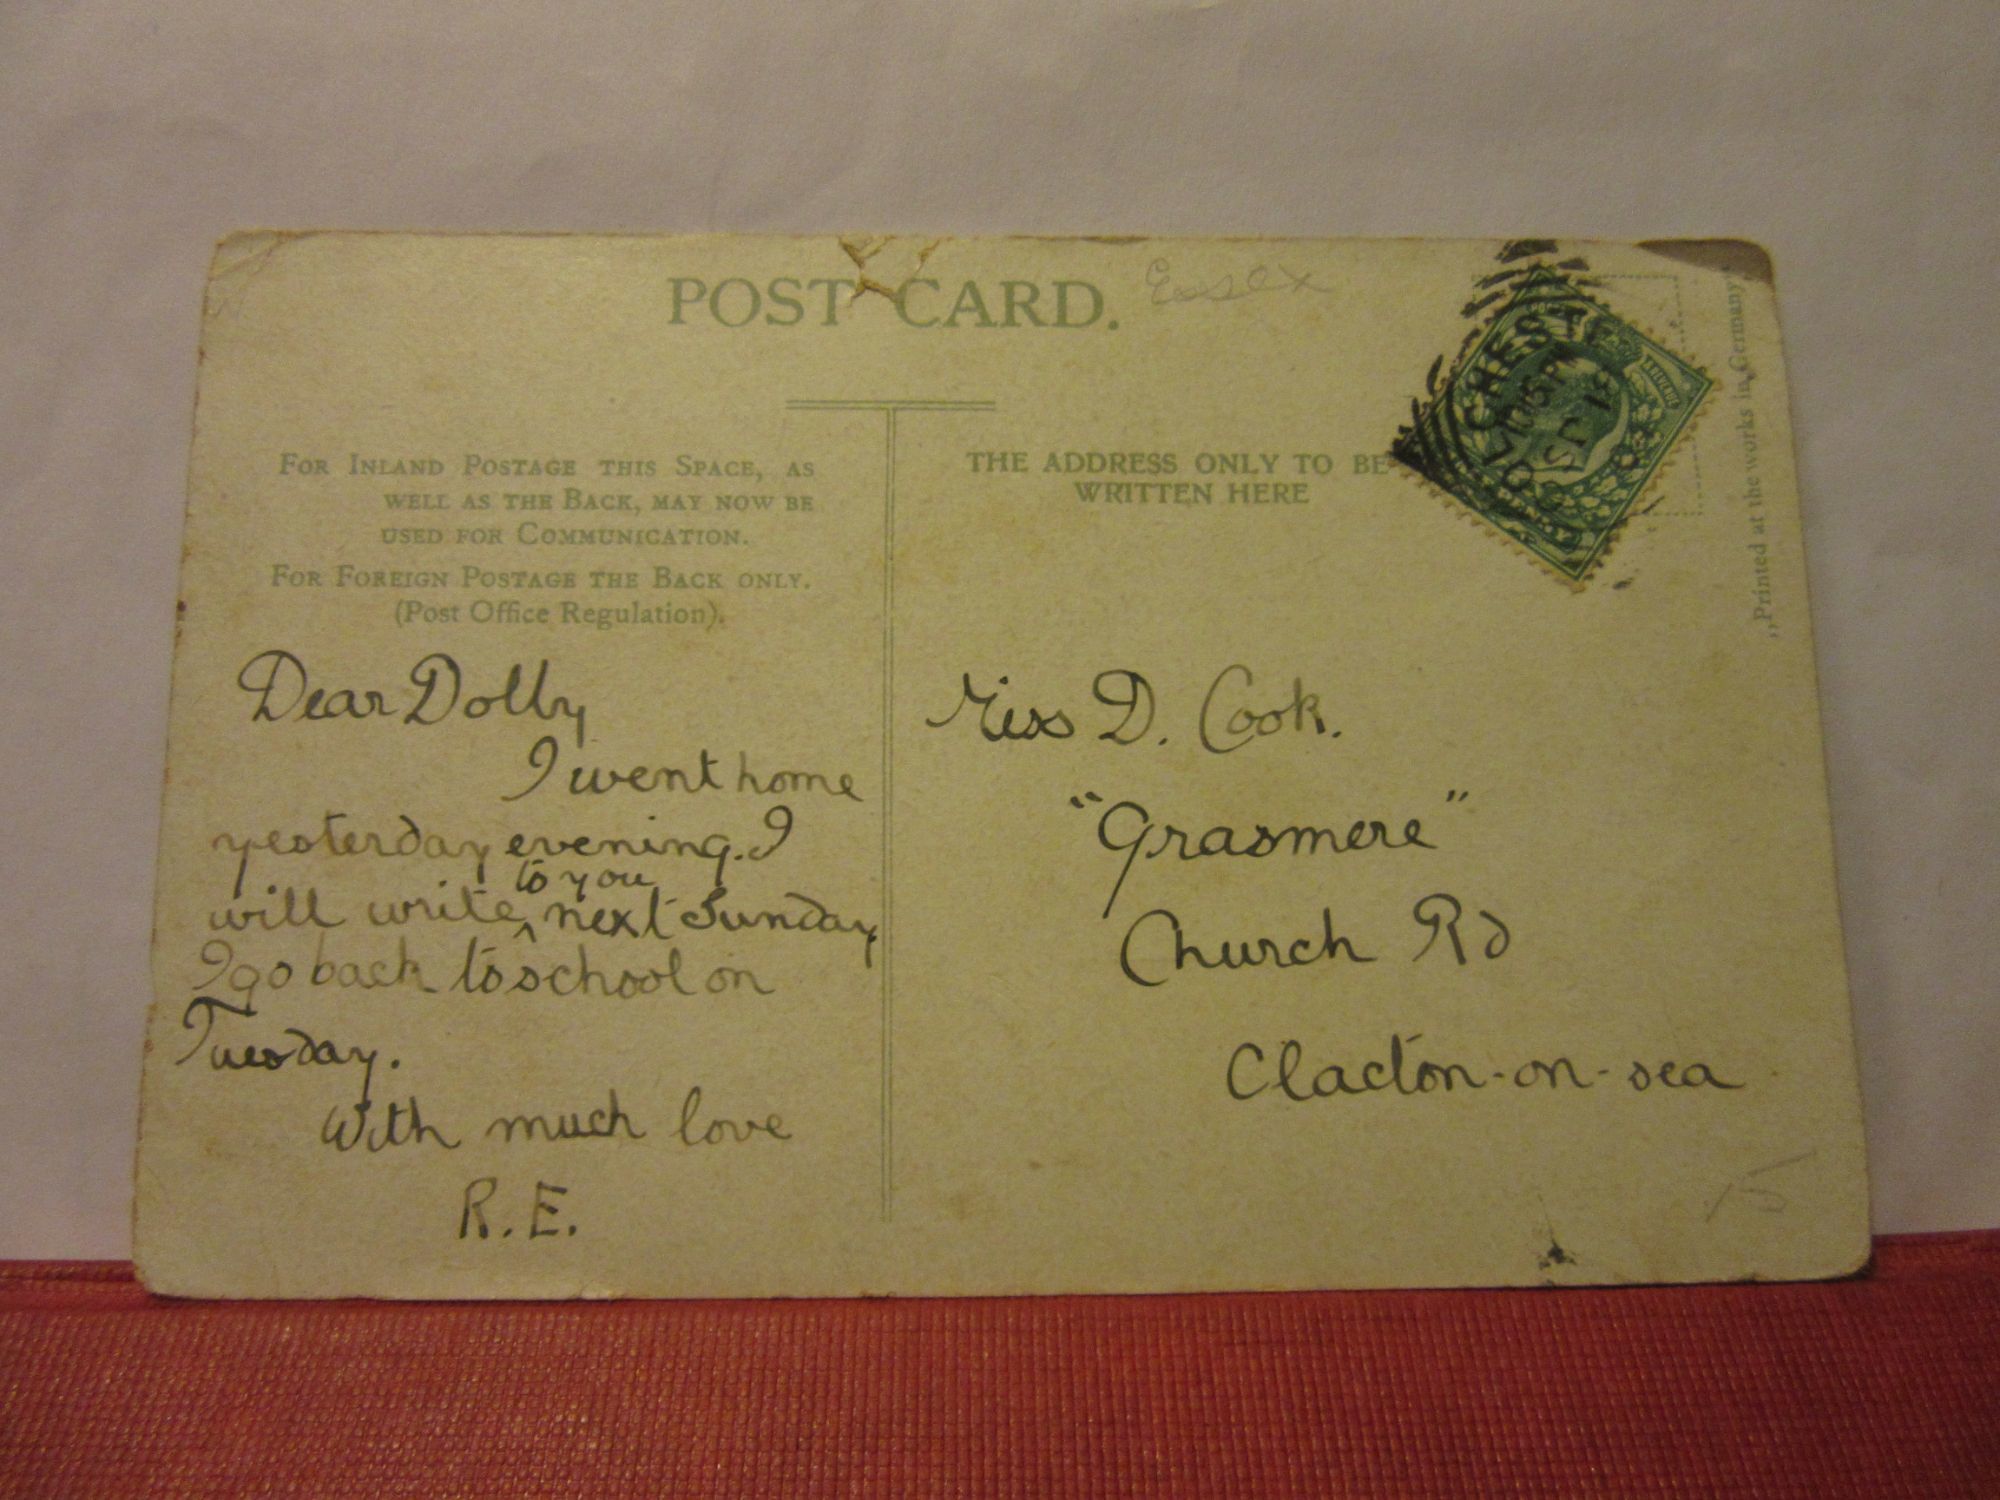 POST CARD.
Essex
FOR INLAND POSTAGE THIS SPACE, AS
WELL AS THE BACK, MAY NOW BE
USED FOR COMMUNICATION.
FOR FOREIGN POSTAGE THE BACK ONLY.
(Post Office Regulation).
Dear Dolly
I went home
yesterday evening. I
to you
will write ^ next Sunday
I go back to school on
Tuesday.
With much love
R.E.
THE ADDRESS ONLY TO BE
WRITTEN HERE
COLCHESTE
SP 18
Miss D. Cook.
"Grasmere"
Church Rd
Clacton-on-sea
15
„Printed at the works in Germany"